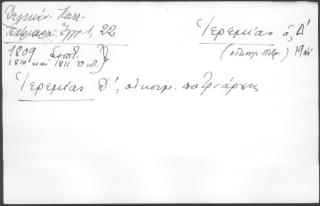 Δελικάν. Καλλ.
Πατριαρχ. Ἔγγρ. 1, 22
1809 Σεπτ.
1810 καὶ 1811
Ἱερεμίας ὁ, Δ´
(οἰκουμ. πατρ.) 19
Ἱερεμίας Δ´, οἰκουμ. πατριάρχης